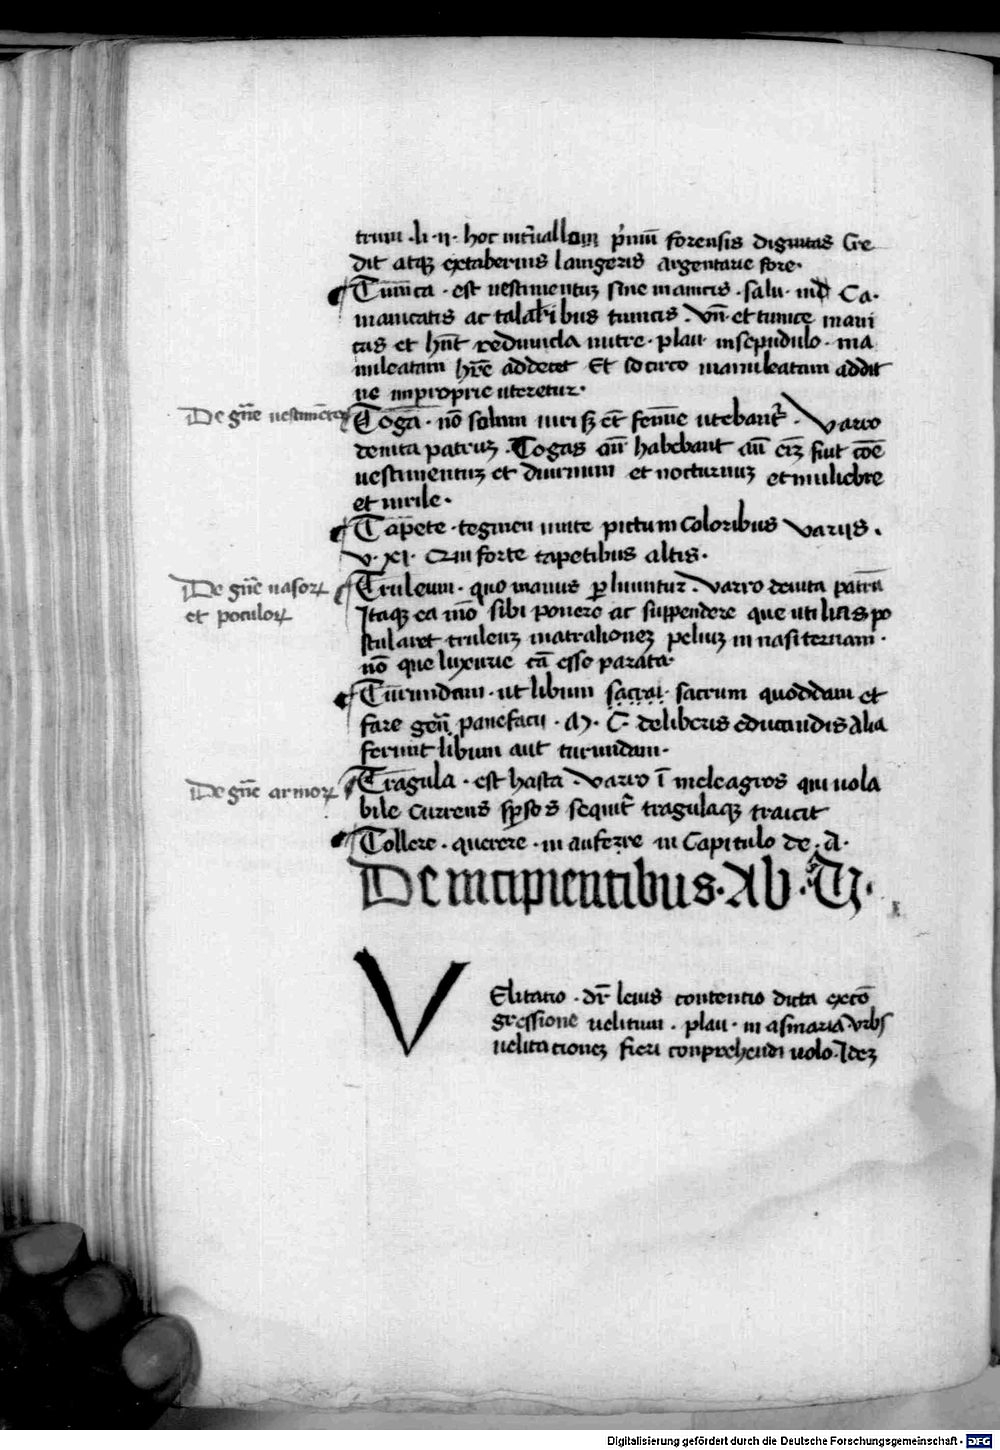 trum .li .ij. hoc int̃uallom p̃mũ forensis dignitas Cre
dit atqꝫ extabernis lanigeris argentarie fore.
Tunica . est uestimentuꝫ sine manicis . salu . Ca.
manicatis ac talaribus tunicis . Vñ . et tunice mani
cas et hñt redimicla mitre . plau insepudulo . ma
nuleatam hr̃e addecet Et idcirco manuleatam addit
ne improprie uteretur.
De gñe
Toga . nõ solum uiri sꝫ et̃ femĩe utebant̃ . Varro
deuita patruꝫ . Togas añ habebant añ eĩꝫ fiut cõe
uestimentuꝫ et diurnum et nocturnuꝫ et muliebre
et uirile .
Tapete . tegmen uute pictum Coloribus Varijs .
V . XI . Qui forte tapetibus altis .
De gñe uasoꝝ
et poculoꝝ
Truleum . quo manus p luuntur . Varro deuita patrũ
Itaqꝫ ea mõ sibi ponere ac suspendere que utilitas po
stularet truleuꝫ matralioneꝫ peluiꝫ in nasiternam .
nõ que luxurie cã esse parata .
Turundam . ut libum sacrai . sacrum quoddam et
fare geñ panefacij . M . C . deliberis educandis alia
ferunt libum aut turundam .
De gñe armoꝝ
Tragula . est hasta Varro ĩ meleagros qui uola
bile currens spsos sequit̃ tragulaqꝫ traicit
Tollere . querere . in auferre in Capitulo de . A .
De incipientibus . Ab . V .
VElitatio . dr̃ leuis contentio dicta excõ
gressione uelitum . plau . in asinaria . Vrbs
uelitationeꝫ fieri conprehendi uolo . Ideꝫ
Digitalisierung gefördert durch die Deutsche Forschungsgemeinschaft - DFG